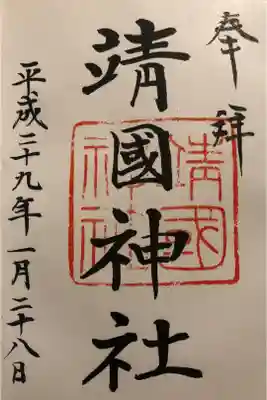 奉拜
靖國神社
平成二十九年一月二十八日
靖國
神社